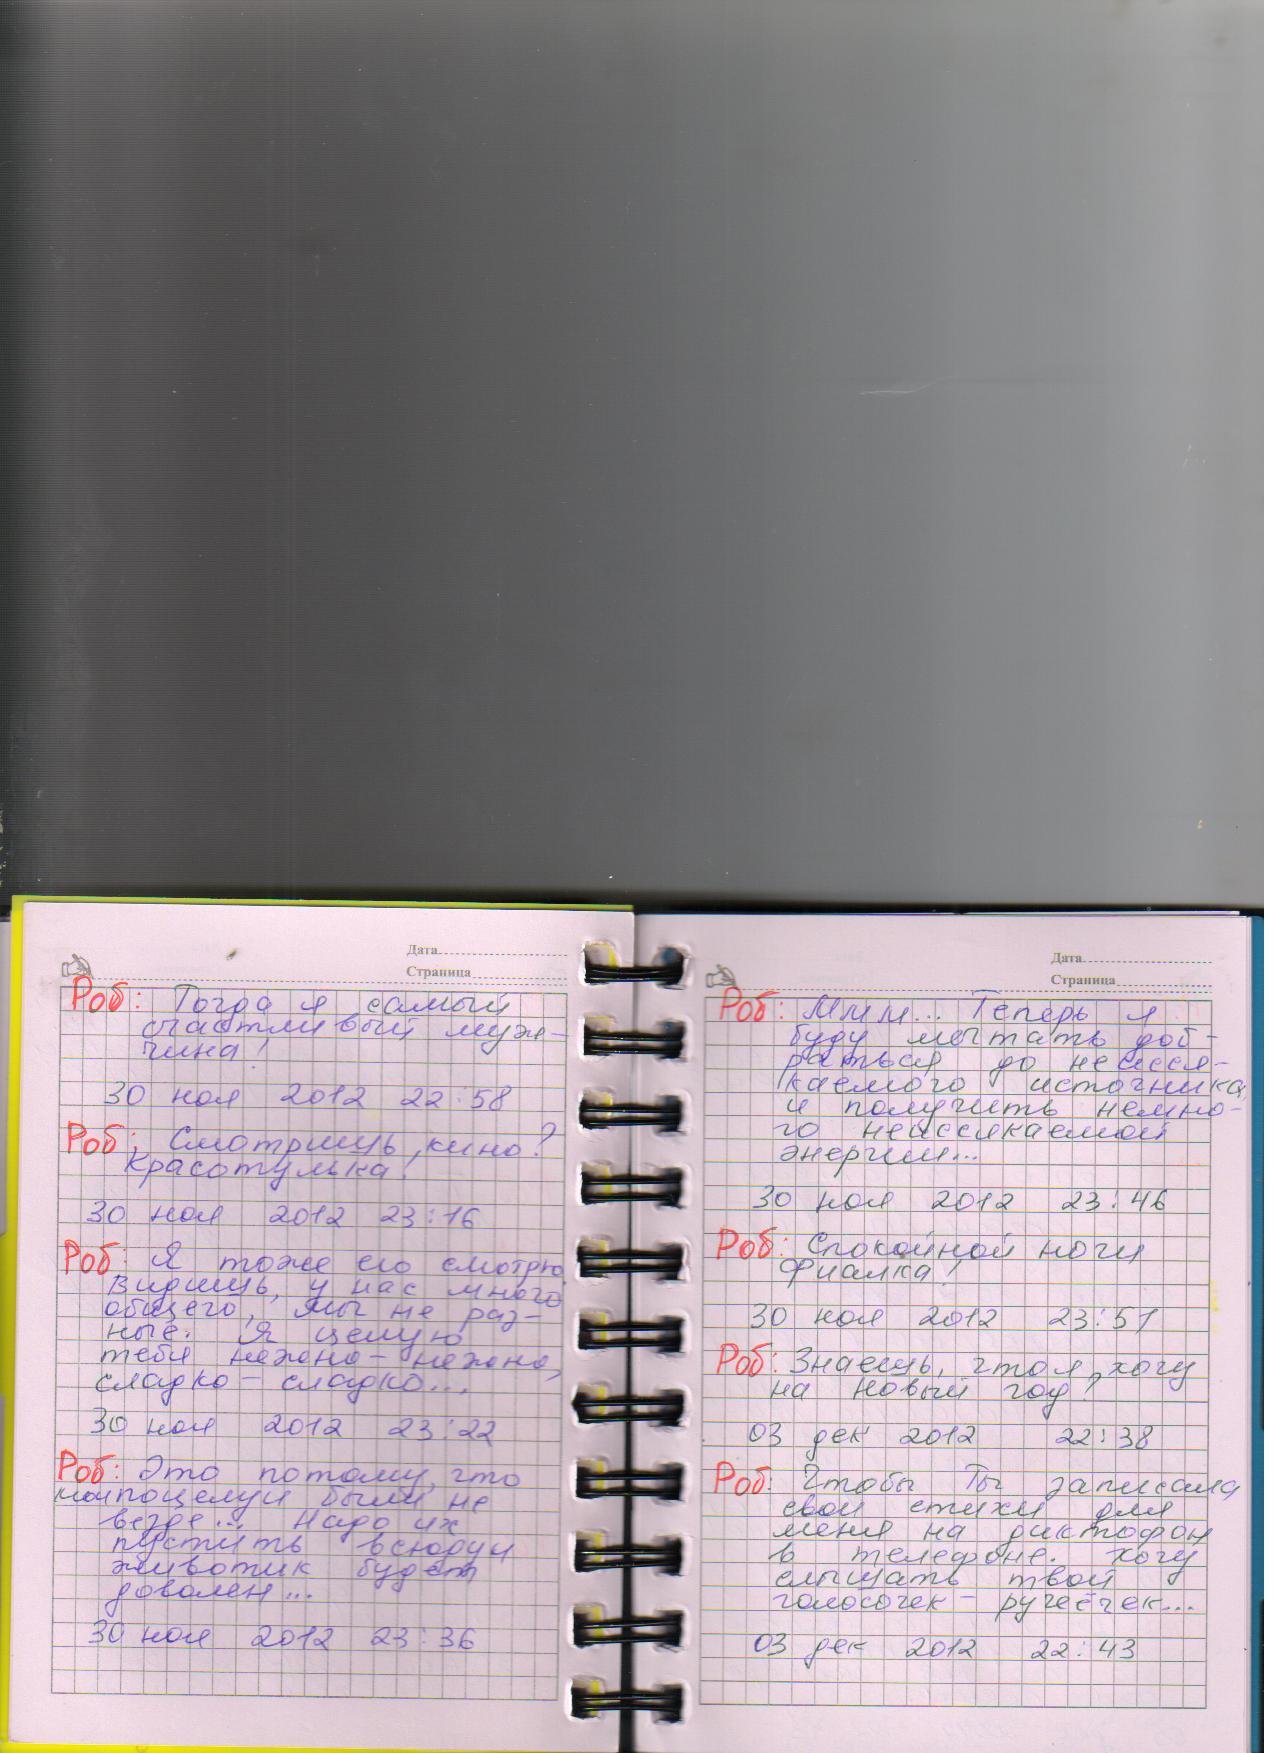 Дата
Страница
Роб: Тогда я самый
счастливый муж-
чина!
30 ноя 2012 22:58
Роб: Смотришь кино?
Красотулька!
30 ноя 2012 23:16
Роб: Я тоже его смотрю
Видишь, у нас много
общего, мы не раз-
ные. Я целую
тебя нежно-нежно,
сладко-сладко...
30 ноя 2012 23:22
Роб: Это потому, что
мои поцелуи были не
везде... Надо их
пустить всюду и
животик будет
доволен...
30 ноя 2012 23:36
Дата
Страница
Роб: Ммм... Теперь я
буду мечтать доб-
раться до неисся-
каемого источника
и получить немно-
го неиссякаемой
энергии...
30 ноя 2012 23:46
Роб: Спокойной ночи
Фиалка!
30 ноя 2012 23:57
Роб: Знаешь, что я хочу
на Новый год?
03 дек 2012 22:38
Роб: Чтобы Ты записала
свои стихи для
меня на диктофон
в телефоне. Хочу
слышать твой
голосочек-ручеёчек...
03 дек 2012 22:43